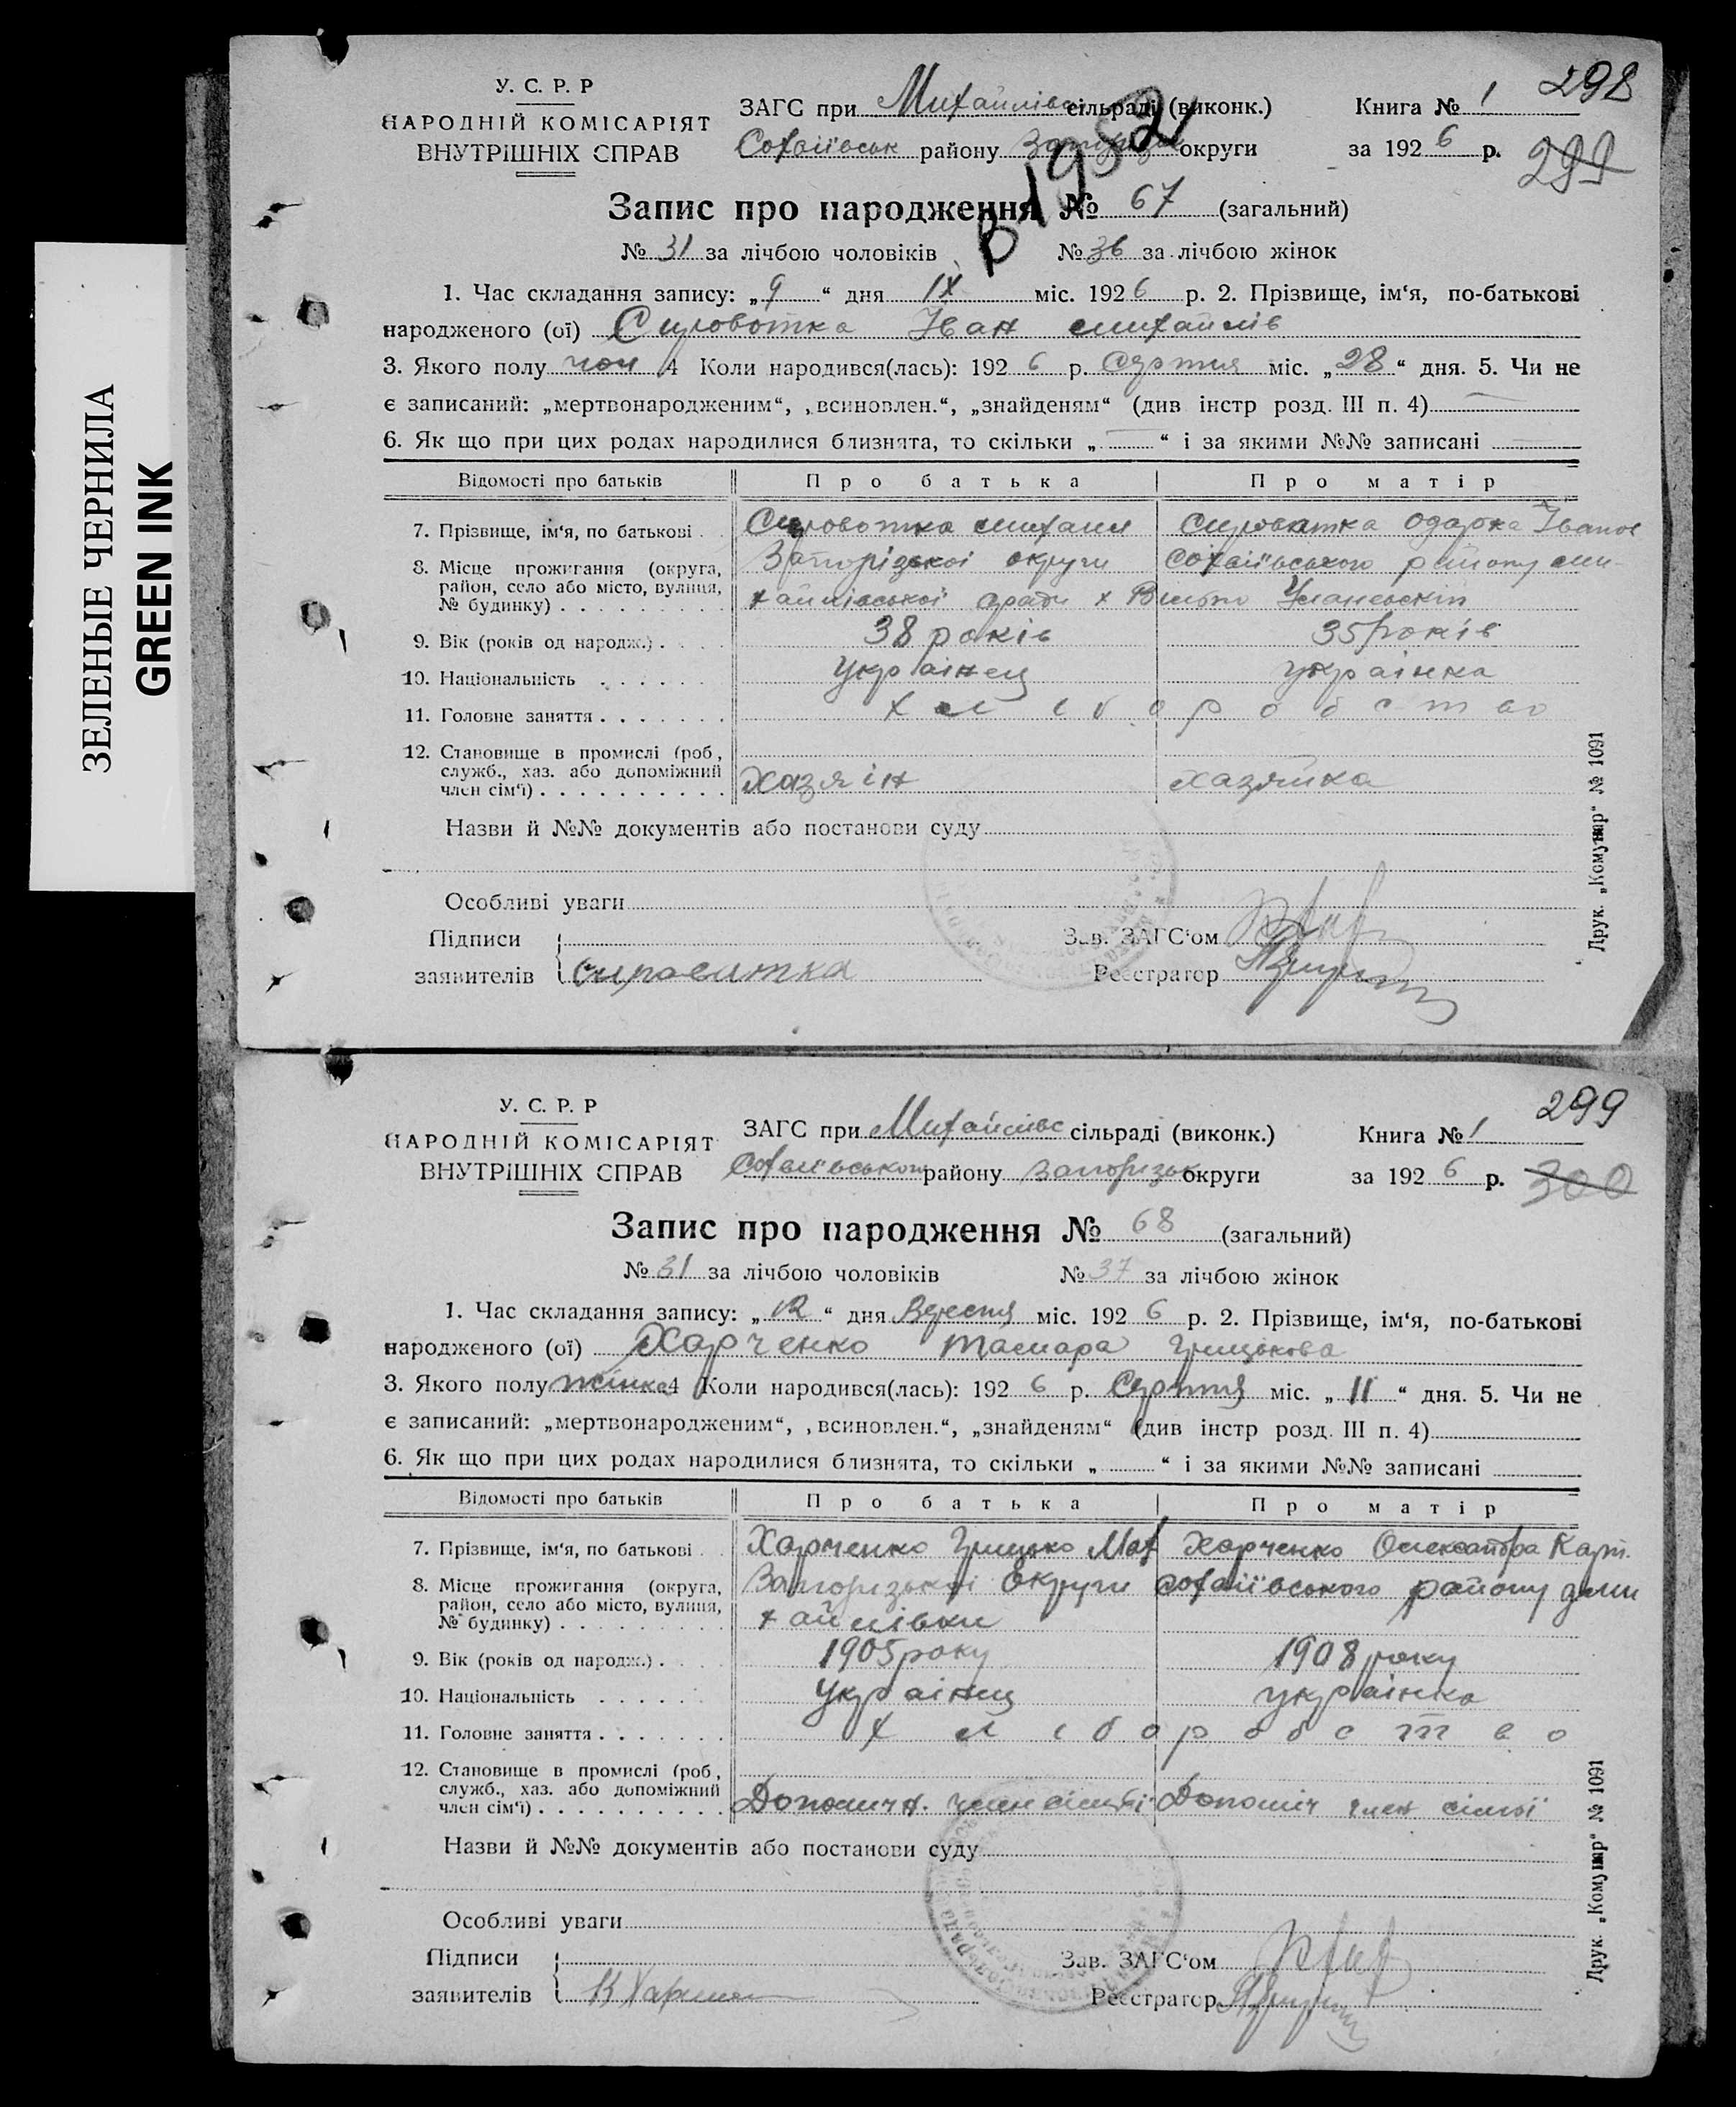 ЗЕЛЕНЫЕ ЧЕРНИЛА
GREEN INK
298
У. С. Р. Р
НАРОДНІЙ КОМІСАРІЯТ
ВНУТРІШНІХ СПРАВ
ЗАГС при Михайлівс сільраді (виконк.)
Софіївськ району Запорізьк округи
Книга № 1
за 1926 р.
299
В 1952
Запис про народження № 67 (загальний)
№ 31 за лічбою чоловіків № 36 за лічбою жінок
1. Час складання запису: „9“ дня IX міс. 1926 р. 2. Прізвище, ім‘я, по-батькові
народженого (ої) Сировотка Іван Михайлів
3. Якого полу чол 4 Коли народився(лась): 1926 р. Серпня міс. „28“ дня. 5. Чи не
є записаний: „мертвонародженим“, „всиновлен.“, „знайденям“ (див інстр розд. III п. 4)
6. Як що при цих родах народилися близнята, то скільки „ “ і за якими №№ записані
Відомості про батьків Про батька Про матір
7. Прізвище, ім‘я, по батькові Сировотка Михаил Сироватка Одарка Іванов
8. Місце прожигання (округа, район, село або місто, вулиця, № будинку) Запорізької округи Софіївського району Ми-
хайлівської сради х
9. Вік (років од народж.) 38 років 35 років
10. Національність українец українка
11. Головне заняття хліборобство
12. Становище в промислі (роб, служб., хаз. або допоміжний член сім‘ї) Хазяін хазяйка
Назви й №№ документів або постанови суду
Особливі уваги
Підписи заявителів Сироватка
Зав. ЗАГС‘ом
Реєстратор
Друк. „Комунар“ № 1091
299
У. С. Р. Р
НАРОДНІЙ КОМІСАРІЯТ
ВНУТРІШНІХ СПРАВ
ЗАГС при Михайлівс сільраді (виконк.)
Софіївського району Запорізьк округи
Книга № 1
за 1926 р.
300
Запис про народження № 68 (загальний)
№ 31 за лічбою чоловіків № 37 за лічбою жінок
1. Час складання запису: „12“ дня Вересня міс. 1926 р. 2. Прізвище, ім‘я, по-батькові
народженого (ої) Харченко Тамара Грицькова
3. Якого полу жінка 4 Коли народився(лась): 1926 р. Серпня міс. „11“ дня. 5. Чи не
є записаний: „мертвонародженим“, „всиновлен.“, „знайденям“ (див інстр розд. III п. 4)
6. Як що при цих родах народилися близнята, то скільки „ “ і за якими №№ записані
Відомості про батьків Про батька Про матір
7. Прізвище, ім‘я, по батькові Харченко Грицько Маф Харченко Олександра Карп.
8. Місце прожигання (округа, район, село або місто, вулиця, № будинку) Запоризької округи Софіївського району
хайлівки
9. Вік (років од народж.) 1905 року 1908 року
10. Національність українец українка
11. Головне заняття хліборобство
12. Становище в промислі (роб, служб., хаз. або допоміжний член сім‘ї) Допомічн. член сімьї Допоміч член сімьї
Назви й №№ документів або постанови суду
Особливі уваги
Підписи заявителів
Зав. ЗАГС‘ом
Реєстратор
Друк. „Комунар“ № 1091